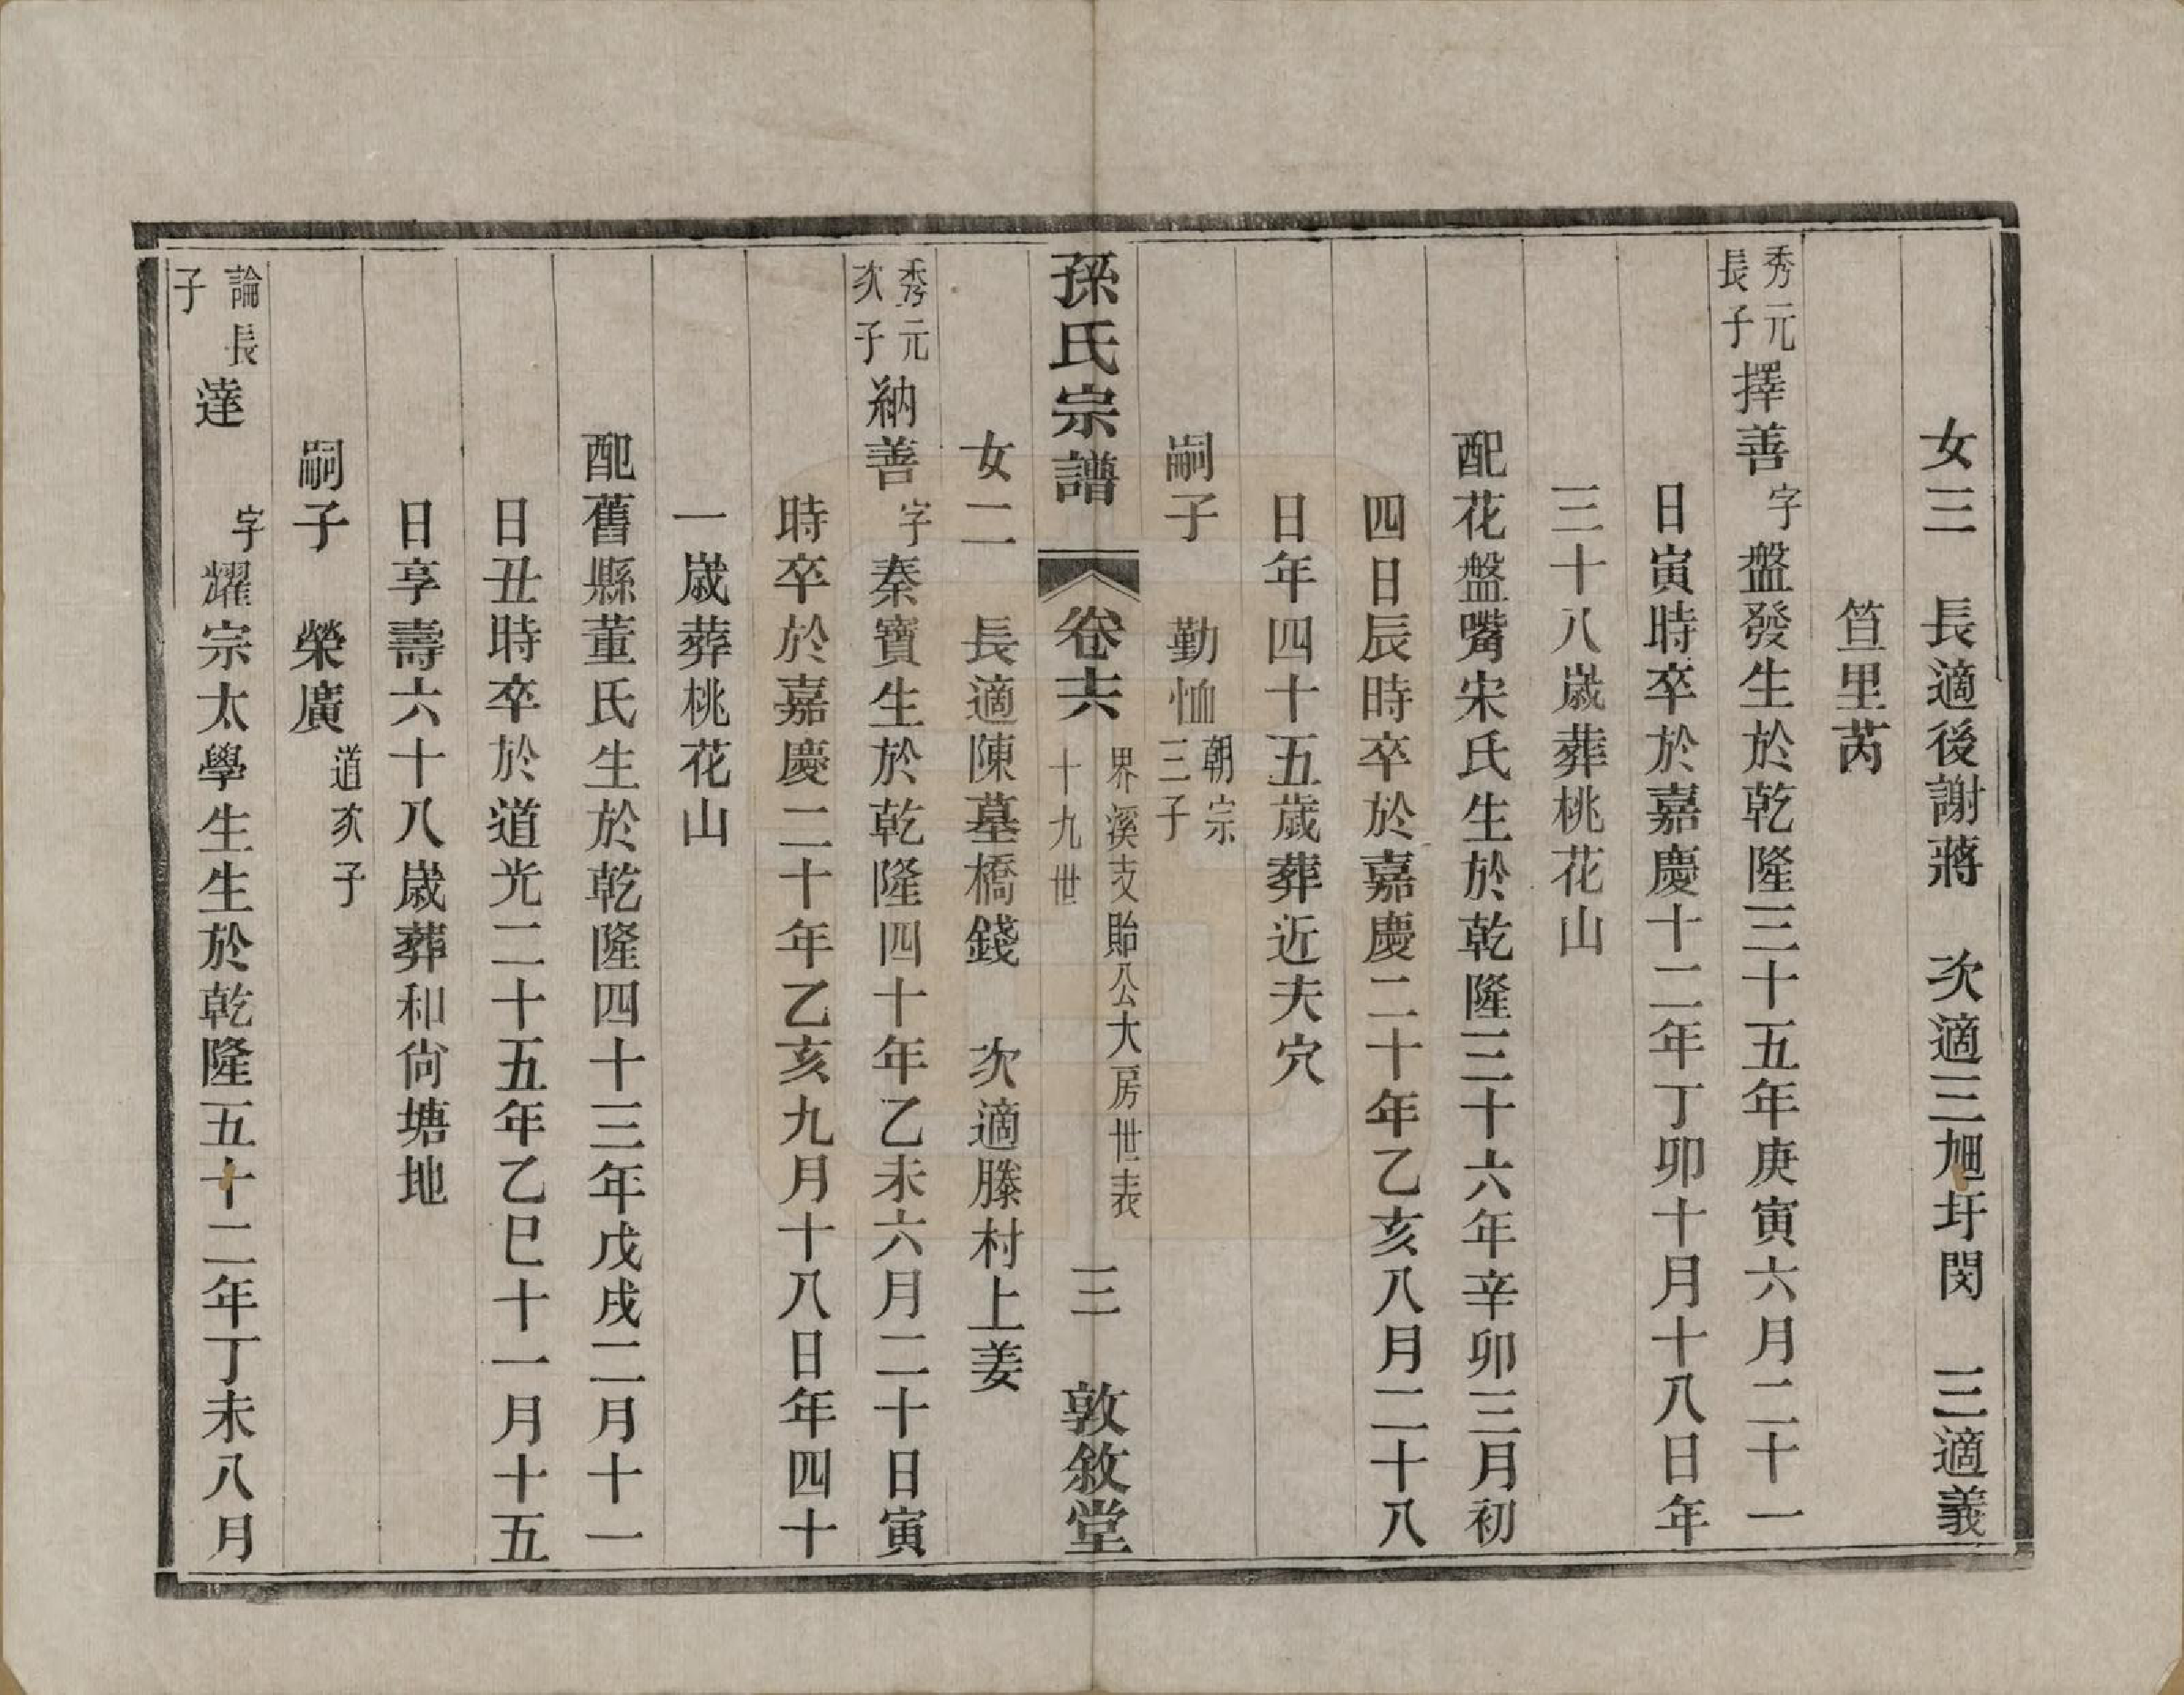 女三　長適後謝蔣　次適三𪨊圩閔　三適義
笪里芮
秀元長子擇善字盤發生於乾隆三十五年庚寅六月二十一
日寅時卒於嘉慶十二年丁卯十月十八日年
三十八歲葬桃花山
配花盤嘴宋氏生於乾隆三十六年辛卯三月初
四日辰時卒於嘉慶二十年乙亥八月二十八
日年四十五歲葬近夫穴
嗣子　勤恤朝宗三子
孫氏宗譜　卷十六　界溪支貽公大房世表十九世　三　敦敘堂
女二　長適陳墓橋錢　次適滕村上姜
秀元次子納善字秦寶生於乾隆四十年乙未六月二十日寅
時卒於嘉慶二十年乙亥九月十八日年四十
一歲葬桃花山
配舊縣董氏生於乾隆四十三年戊戌二月十一
日丑時卒於道光二十五年乙巳十一月十五
日享壽六十八歲葬和尙塘地
嗣子　榮廣道次子
論長子達　字耀宗太學生生於乾隆五十二年丁未八月